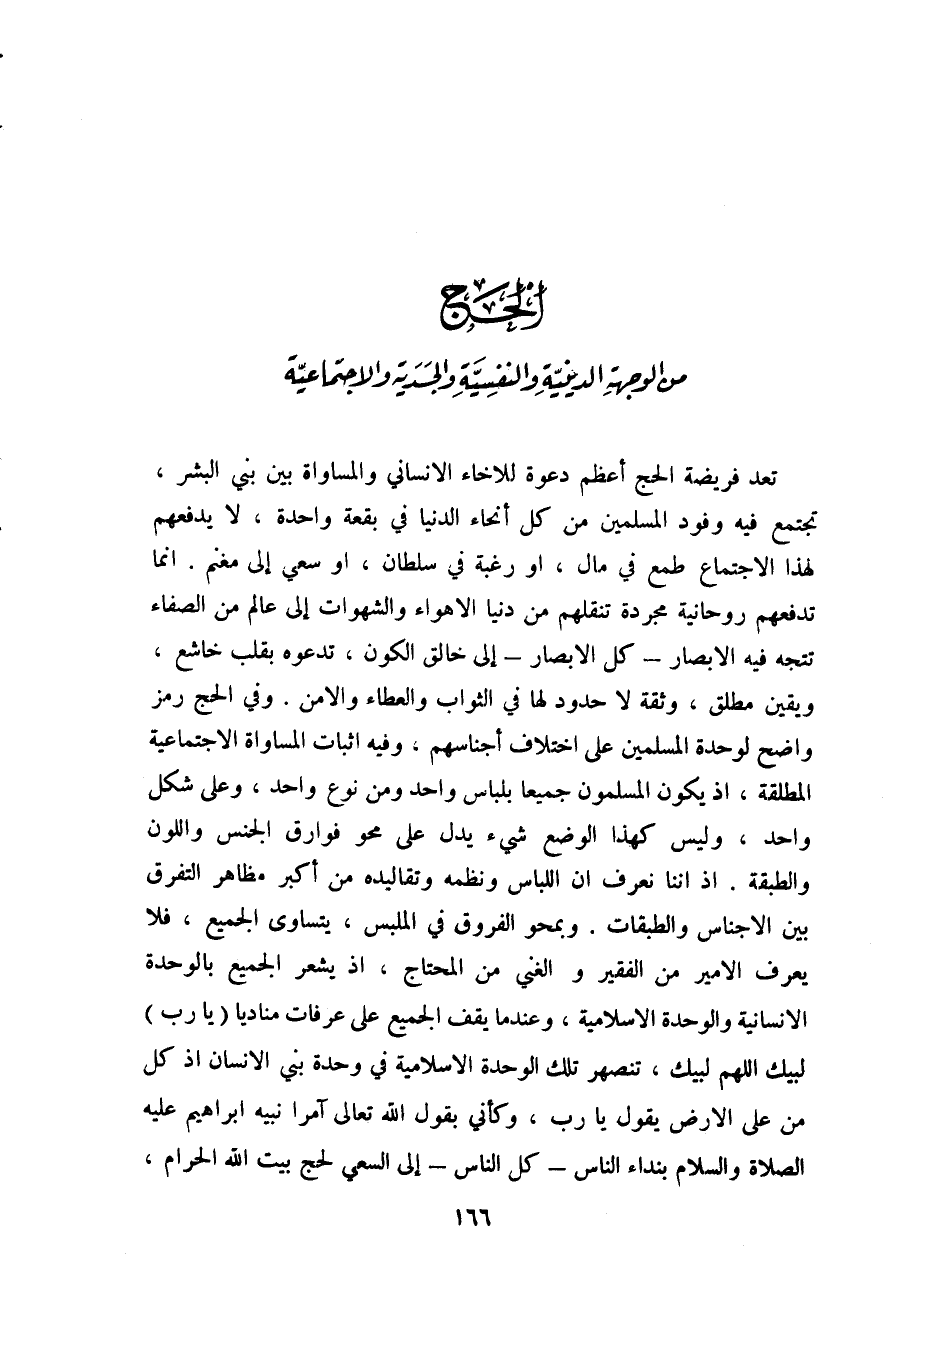 الحج
من الوجهة الدينية والنفسية والجسدية والاجتماعية
تعد فريضة الحج أعظم دعوة للاخاء الانساني والمساواة بين بني البشر ،
تجتمع فيه وفود المسلمين من كل أنحاء الدنيا في بقعة واحدة ، لا يدفعهم
لهذا الاجتماع طمع في مال ، او رغبة في سلطان ، او سعي إلى مغنم . انما
تدفعهم روحانية مجردة تنقلهم من دنيا الاهواء والشهوات إلى عالم من الصفاء
تتجه فيه الابصار – كل الابصار – إلى خالق الكون ، تدعوه بقلب خاشع ،
ويقين مطلق ، وثقة لا حدود لها في الثواب والعطاء والامن . وفي الحج رمز
واضح لوحدة المسلمين على اختلاف أجناسهم ، وفيه اثبات المساواة الاجتماعية
المطلقة ، اذ يكون المسلمون جميعا بلباس واحد ومن نوع واحد ، وعلى شكل
واحد ، وليس كهذا الوضع شيء يدل على محو فوارق الجنس واللون
والطبقة . اذ اننا نعرف ان اللباس ونظمه وتقاليده من أكبر مظاهر التفرق
بين الاجناس والطبقات . وبمحو الفروق في الملبس ، يتساوى الجميع ، فلا
يعرف الامير من الفقير و الغني من المحتاج ، اذ يشعر الجميع بالوحدة
الانسانية والوحدة الاسلامية ، وعندما يقف الجميع على عرفات مناديا ( يا رب )
لبيك اللهم لبيك ، تنصهر تلك الوحدة الاسلامية في وحدة بني الانسان اذ كل
من على الارض يقول يا رب ، وكأني بقول الله تعالى آمرا نبيه ابراهيم عليه
الصلاة والسلام بنداء الناس – كل الناس – إلى السعي لحج بيت الله الحرام ،
١٦٦